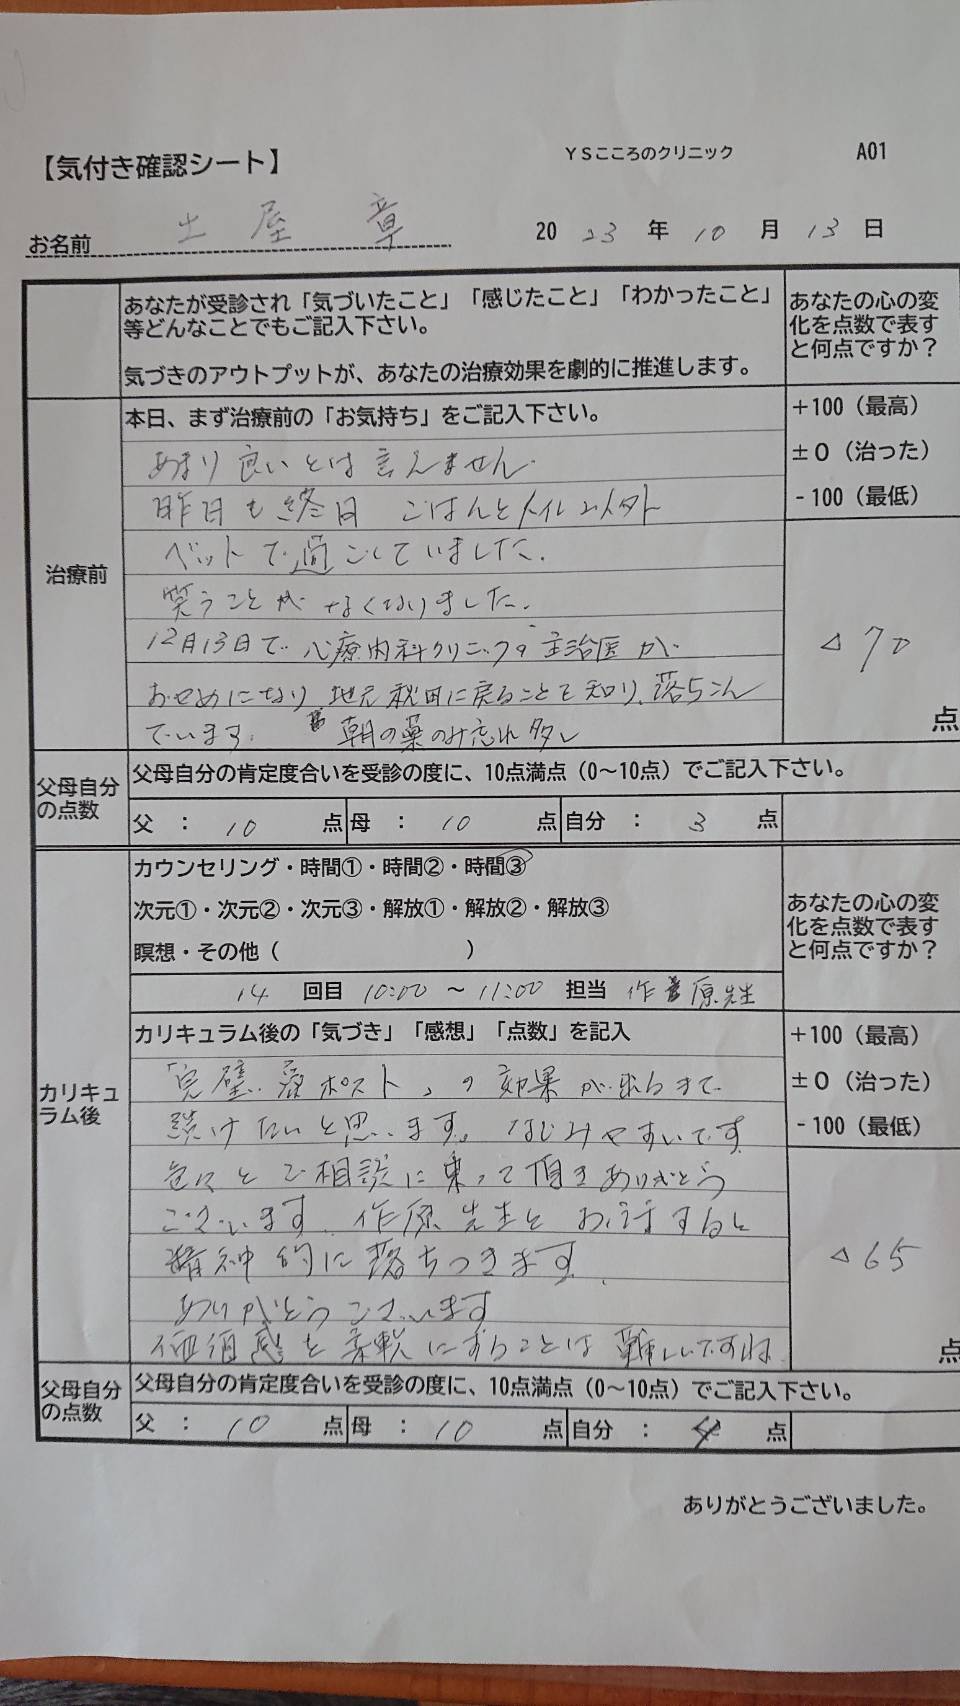 【気付き確認シート】 ＹＳこころのクリニック A01
お名前 土屋 章 2023年10月13日
あなたが受診され「気づいたこと」「感じたこと」「わかったこと」
等どんなことでもご記入下さい。
気づきのアウトプットが、あなたの治療効果を劇的に推進します。
あなたの心の変
化を点数で表す
と何点ですか？
治療前
本日、まず治療前の「お気持ち」をご記入下さい。
あまり良いとは言えません.
昨日も終日 ごはんとトイレ以外
ベットで過ごしていました.
笑うことが なくなりました.
12月13日で 心療内科クリニックの主治医が
おやめになり 地元秋田に戻ることを知り、落ちこん
でいます. 朝の薬のみ忘れ多し
+100（最高）
±0（治った）
-100（最低）
△70
点
父母自分
の点数
父母自分の肯定度合いを受診の度に、10点満点（0～10点）でご記入下さい。
父 ： 10 点 母 ： 10 点 自分 ： 3 点
カリキュ
ラム後
カウンセリング・時間①・時間②・時間③
次元①・次元②・次元③・解放①・解放②・解放③
瞑想・その他（ ）
14 回目 10:00 ～ 11:00 担当 作原先生
あなたの心の変
化を点数で表す
と何点ですか？
カリキュラム後の「気づき」「感想」「点数」を記入
ポスト」の効果が出るまで
続けたいと思います。なじみやすいです
色々とご相談に乗って頂きありがとう
ございます. 作原先生とお話すると
精神的に落ちつきます.
ありがとうございます
価値感を柔軟にすることは難しいですね.
+100（最高）
±0（治った）
-100（最低）
△65
点
父母自分
の点数
父母自分の肯定度合いを受診の度に、10点満点（0～10点）でご記入下さい。
父 ： 10 点 母 ： 10 点 自分 ： 4 点
ありがとうございました。